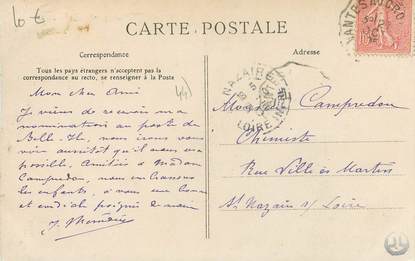 10 €
CARTE POSTALE
Correspondance
Adresse
Tous les pays étrangers n'acceptent pas la
correspondance au recto, se renseigner à la Poste
(44)
Mon cher Ami
Je viens de recevoir ma
nomination au poste de
Belle-Ile, nous irons vous
voir aussitôt qu'il nous sera
possible. Amitiés à Madame
Campredon, nous embrassons
les enfants, à vous une bonne
et cordiale poignée de main
Monsieur Campredon
Chimiste
Rue Ville ès Martin
St Nazaire s/ Loire
NAZAIRE
LOIRE INF